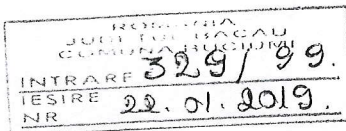 ROMANIA
JUDETUL BACAU
COMUNA BUCIUMI
INTRARE 329/99.
IESIRE
NR 22.01.2019.